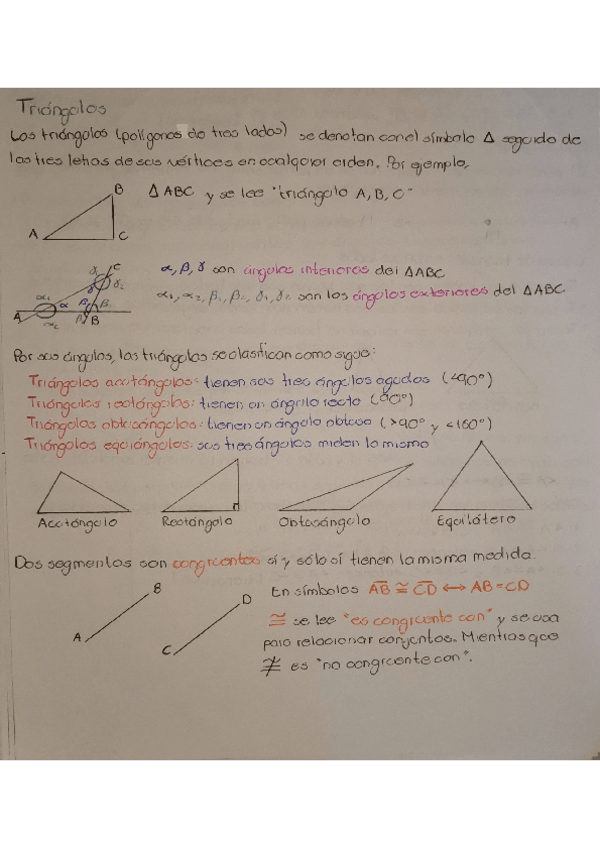 Triángulos
Los triángulos (polígonos de tres lados) se denotan con el símbolo Δ seguido de
las tres letras de sus vértices en cualquier orden. Por ejemplo,
Δ ABC y se lee "triángulo A, B, C"
B
A
C
α, β, γ son ángulos interiores del ΔABC
α₁, α₂, β₁, β₂, γ₁, γ₂ son los ángulos exteriores del ΔABC
γ₁ C
γ γ₂
α₁ α β β₁
A α₂ β₂ B
Por sus ángulos, los triángulos se clasifican como sigue:
Triángulos acutángulos: tienen sus tres ángulos agudos (<90°)
Triángulos rectángulos: tienen un ángulo recto (90°)
Triángulos obtusángulos: tienen un ángulo obtuso (>90° y <180°)
Triángulos equiángulos: sus tres ángulos miden lo mismo
Acutángulo Rectángulo Obtusángulo Equilátero
Dos segmentos son congruentes sí y sólo sí tienen la misma medida.
B
D
A
C
En símbolos A̅B̅ ≅ C̅D̅ ↔ AB = CD
≅ se lee "es congruente con" y se usa
para relacionar conjuntos. Mientras que
≇ es "no congruente con".